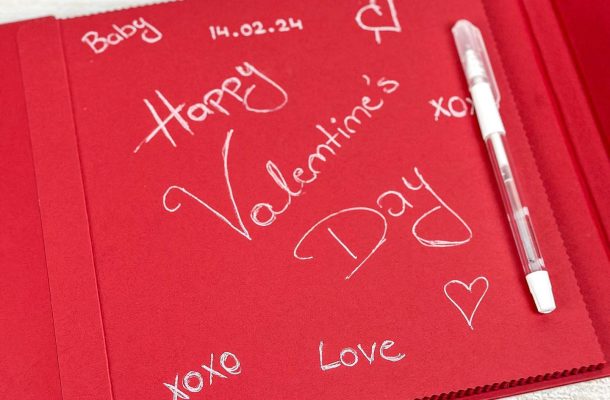 Baby 14.02.24
Happy
Valentine's
Day
XOX
XOXO Love